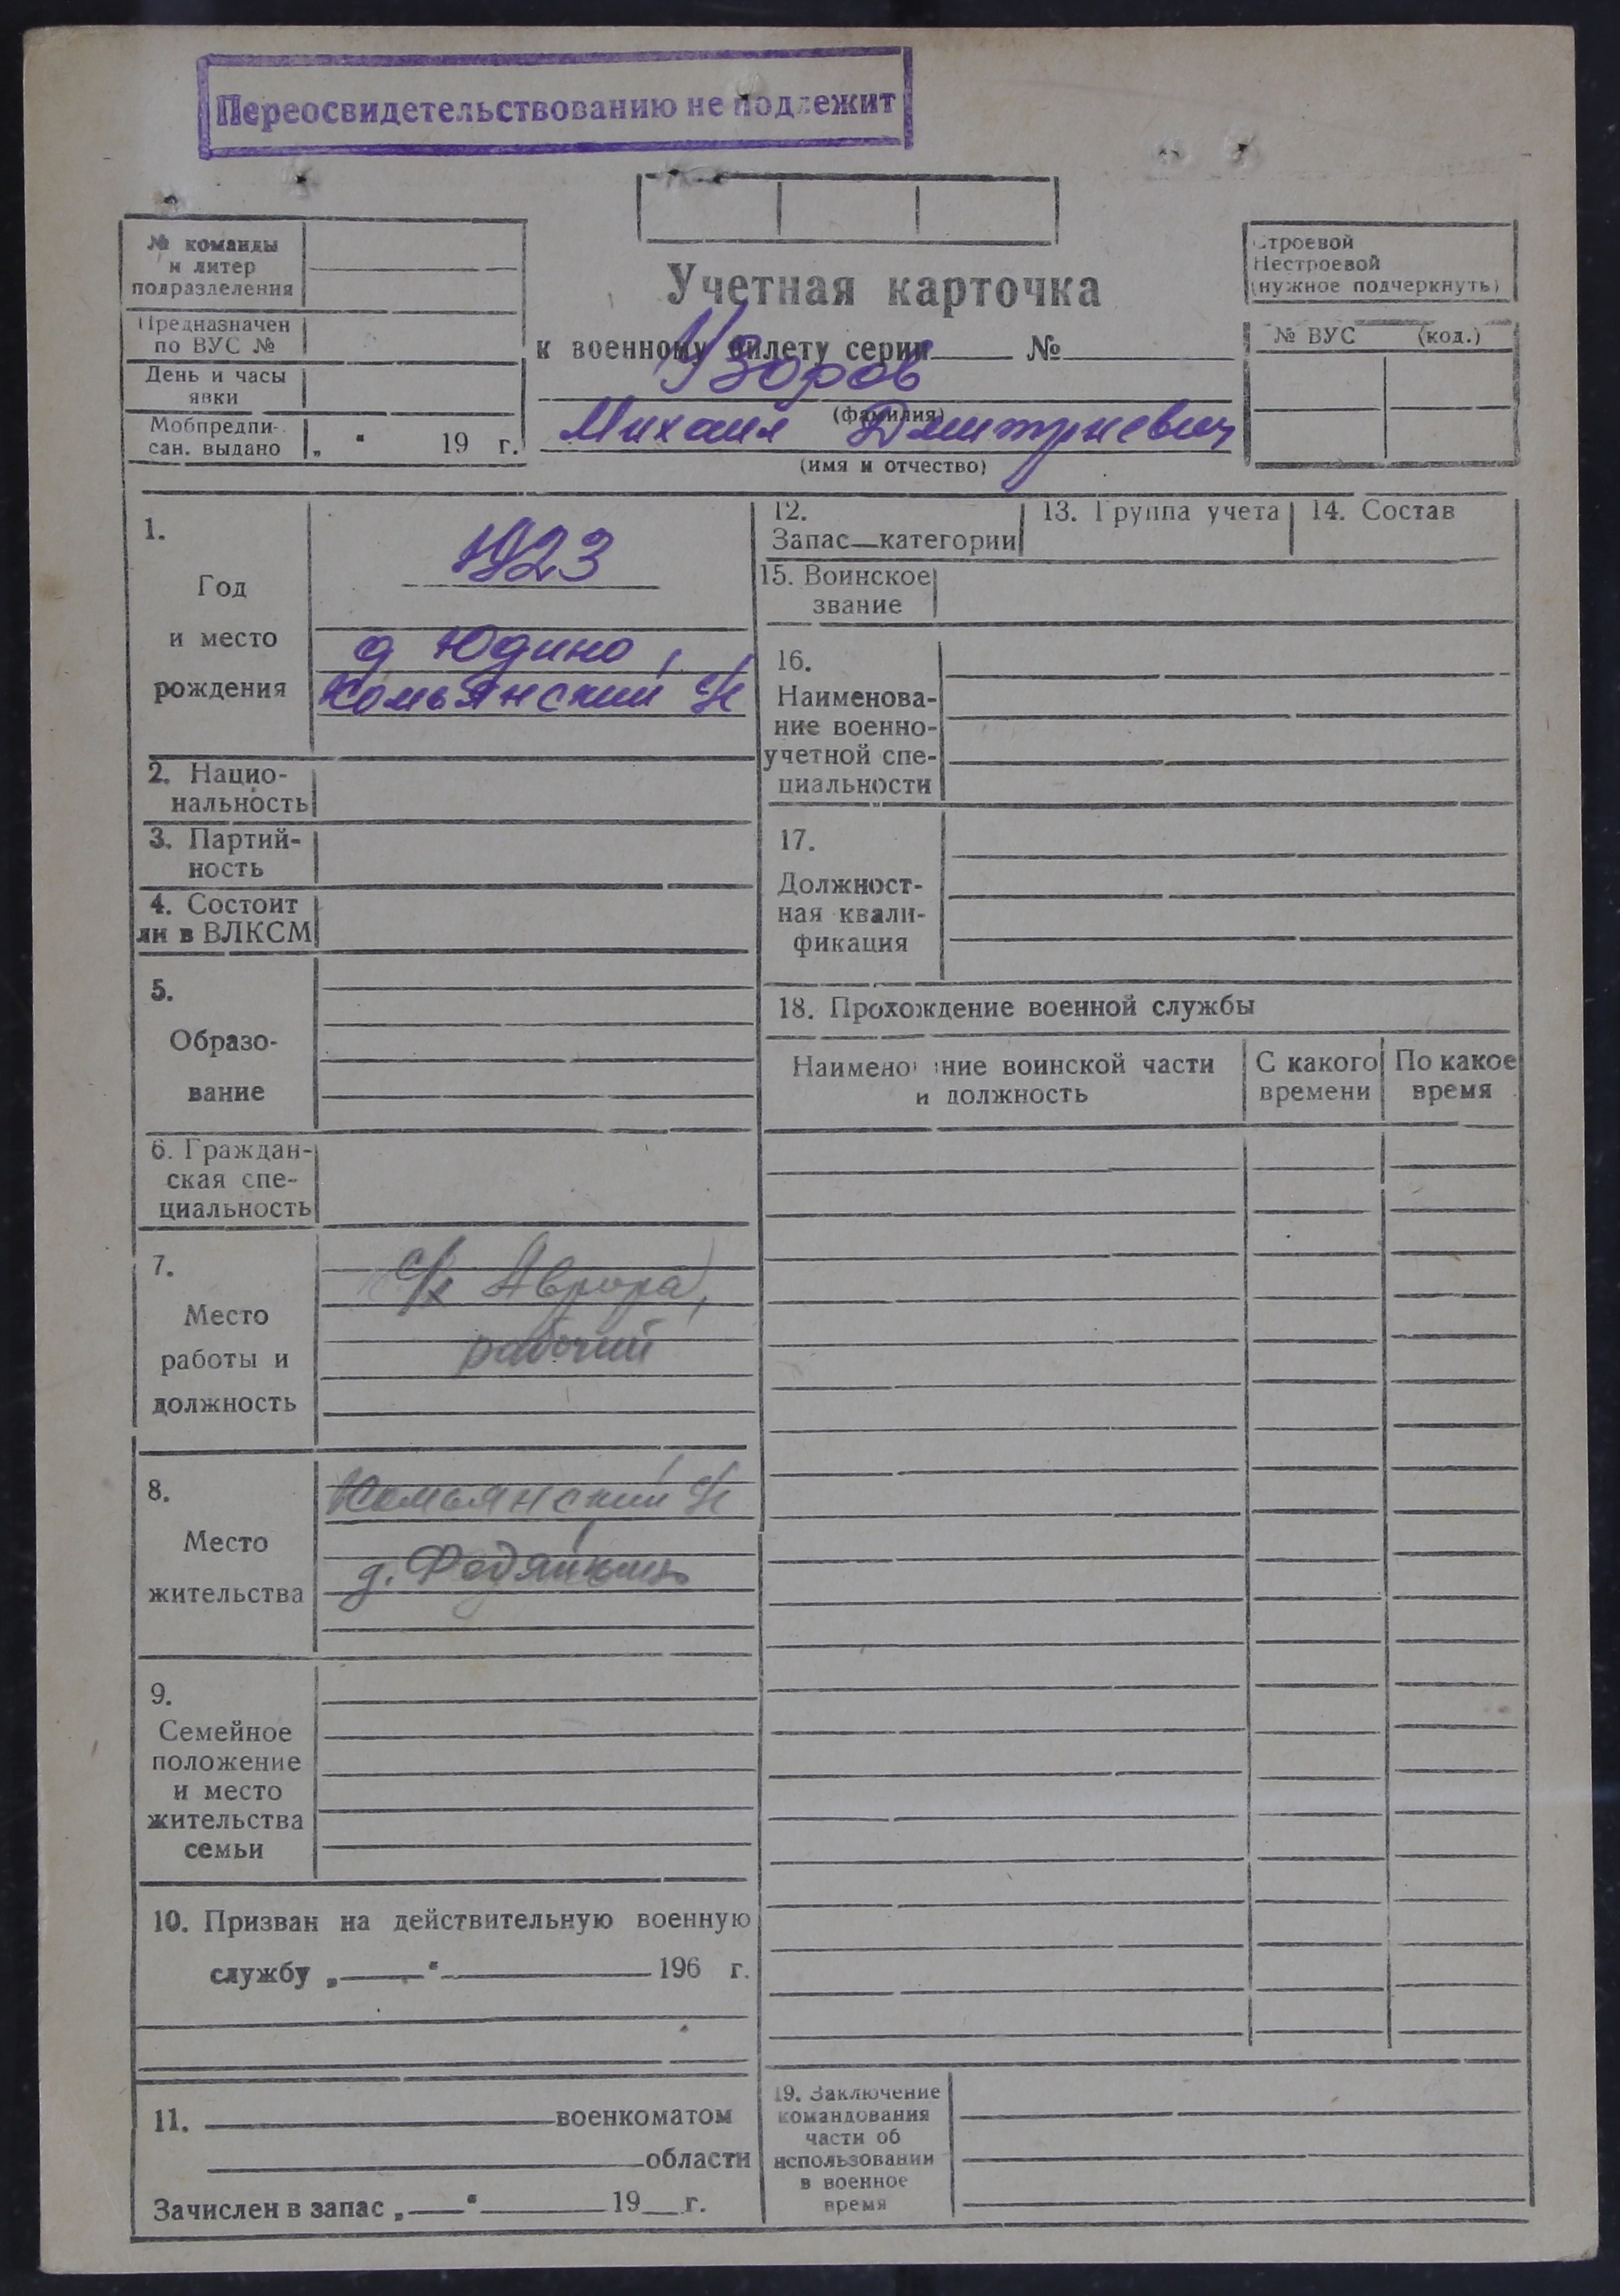 Переосвидетельствованию не подлежит
№ команды
и литер
подразделения
Предназначен
по ВУС №
День и часы
явки
Мобпредпи-
сан. выдано „ “ 19 г.
Учетная карточка
к военному билету серии №
Узоров
(фамилия)
Михаил Дмитриевич
(имя и отчество)
Строевой
Нестроевой
(нужное подчеркнуть)
№ ВУС (код.)
1.
Год
и место
рождения
1923
д Юдино,
Комьянский с/с
2. Нацио-
нальность
3. Партий-
ность
4. Состоит
ли в ВЛКСМ
5.
Образо-
вание
6. Граждан-
ская спе-
циальность
7.
Место
работы и
должность
с/х Аврора,
рабочий
8.
Место
жительства
Комьянский с/с
д.
9.
Семейное
положение
и место
жительства
семьи
10. Призван на действительную военную
службу „ “ 196 г.
11. военкоматом
области
Зачислен в запас „ “ 19 г.
12.
Запас—категории
13. Группа учета
14. Состав
15. Воинское
звание
16.
Наименова-
ние военно-
учетной спе-
циальности
17.
Должност-
ная квали-
фикация
18. Прохождение военной службы
Наименование воинской части
и должность
С какого
времени
По какое
время
19. Заключение
командования
части об
использовании
в военное
время